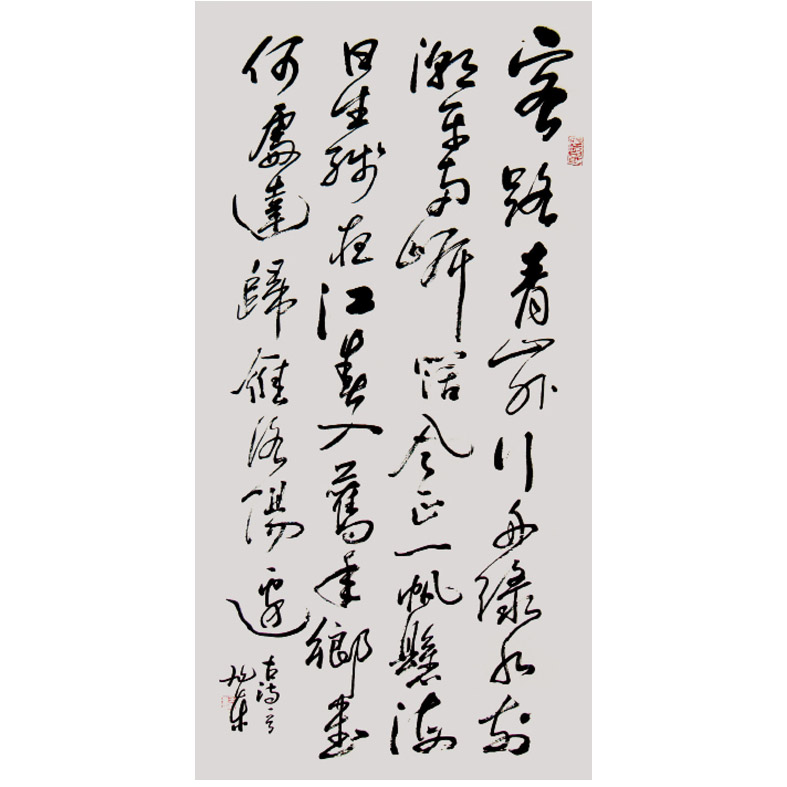 客路青山外行舟綠水前
潮平兩岸闊風正一帆懸海
日生殘夜江春入舊年鄉書
何處達歸雁洛陽邊
古詩一首